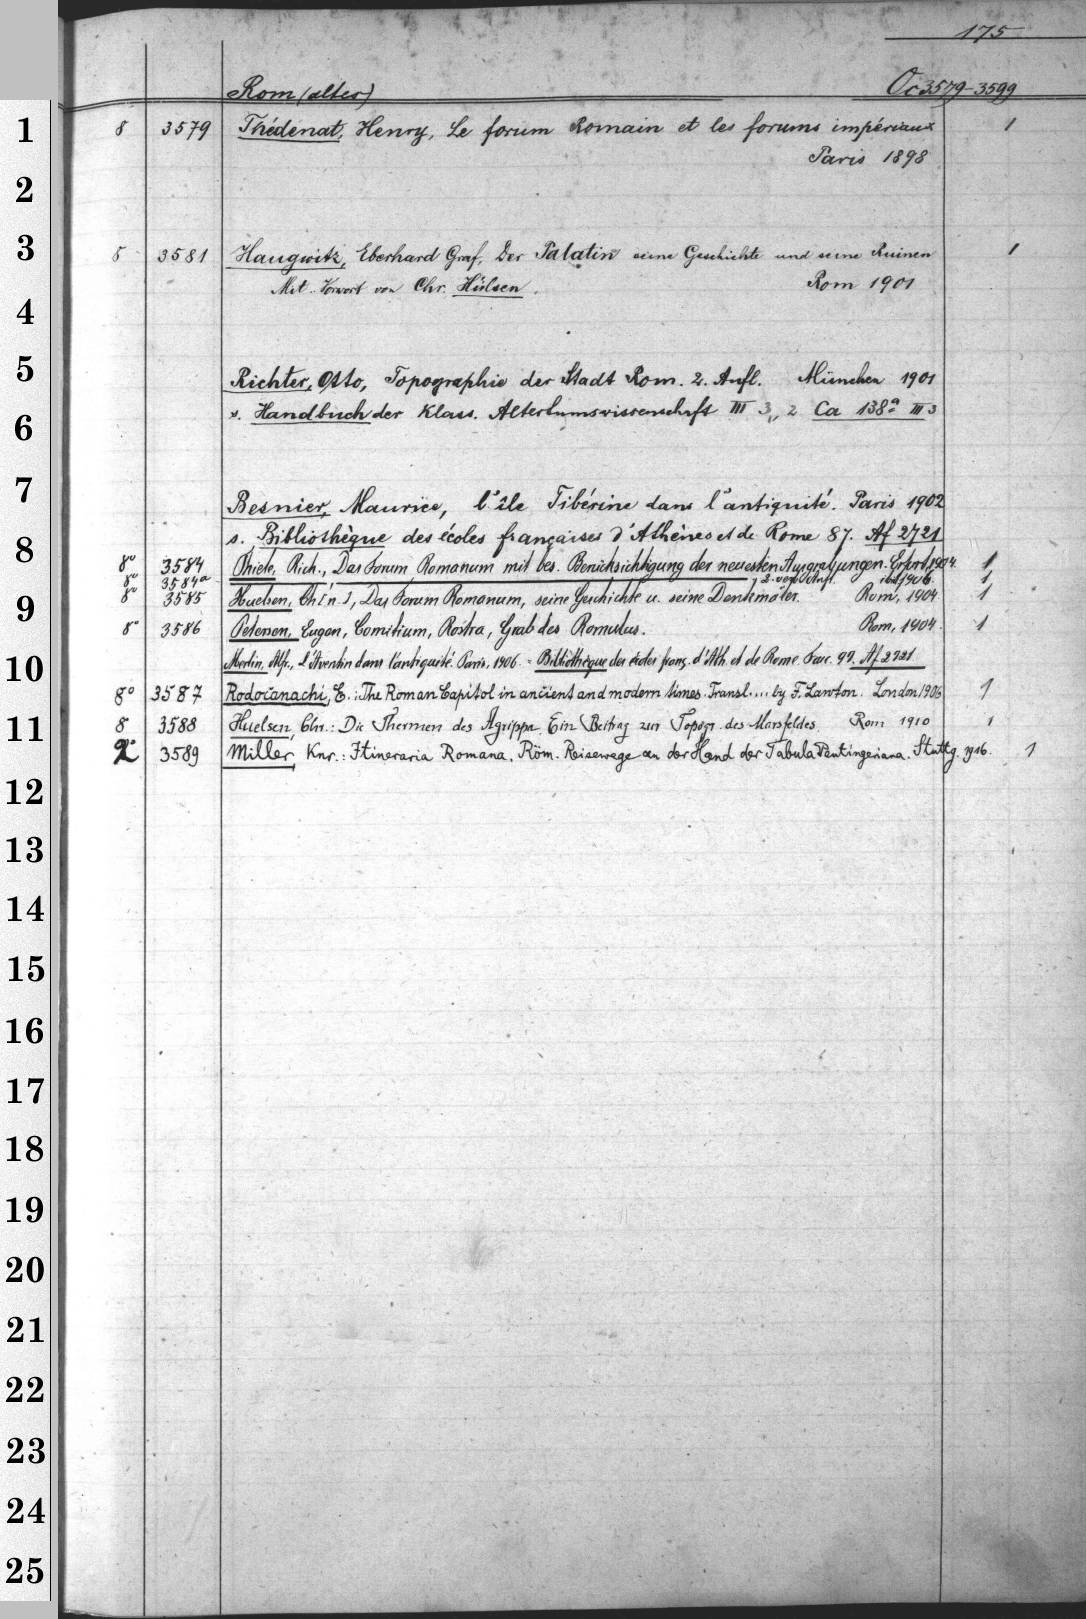 175
Rom (altes) Oc 3579-3599
8 3579 Thédenat, Henry, Le forum Romain et les forums impériaux 1
Paris 1898
8 3581 Haugwitz, Eberhard Graf, Der Palatin seine Geschichte und seine Ruinen 1
Mit Vorwort von Chr. Hülsen. Rom 1901
Richter, Otto, Topographie der Stadt Rom. 2. Aufl. München 1901
s. Handbuch der klass. Altertumswissenschaft III 3, 2 Ca 138a III 3
Besnier, Maurice, l'île Tibérine dans l'antiquité. Paris 1902
s. Bibliothèque des écoles françaises d'Athènes et de Rome 87. Af 2721
8o 3584 Thiele, Rich., Das Forum Romanum mit bes. Berücksichtigung der neuesten Ausgrabungen. Erfurt, 1904 1
8o 3584a 2. verb. Aufl. ibd. 1906. 1
8o 3585 Huelsen, Ch[n.], Das Forum Romanum, seine Geschichte u. seine Denkmäler. Rom, 1904. 1
8o 3586 Petersen, Eugen, Comitium, Rostra, Grab des Romulus. Rom, 1904. 1
Merlin, Alfr., L'Aventin dans l'antiquité. Paris, 1906. = Bibliothèque des écoles franç. d'Ath. et de Rome. Fasc. 97. Af 2721
8o 3587 Rodocanachi, E.: The Roman Capitol in ancient and modern times. Transl.... by F. Lawton. London 1906 1
8 3588 Huelsen, Chr.: Die Thermen des Agrippa. Ein Beitrag zur Topogr. des Marsfeldes Rom 1910 1
2o 3589 Miller, Knr.: Itineraria Romana. Röm. Reisewege an der Hand der Tabula Peutingeriana. Stuttg. 1916. 1
1
2
3
4
5
6
7
8
9
10
11
12
13
14
15
16
17
18
19
20
21
22
23
24
25